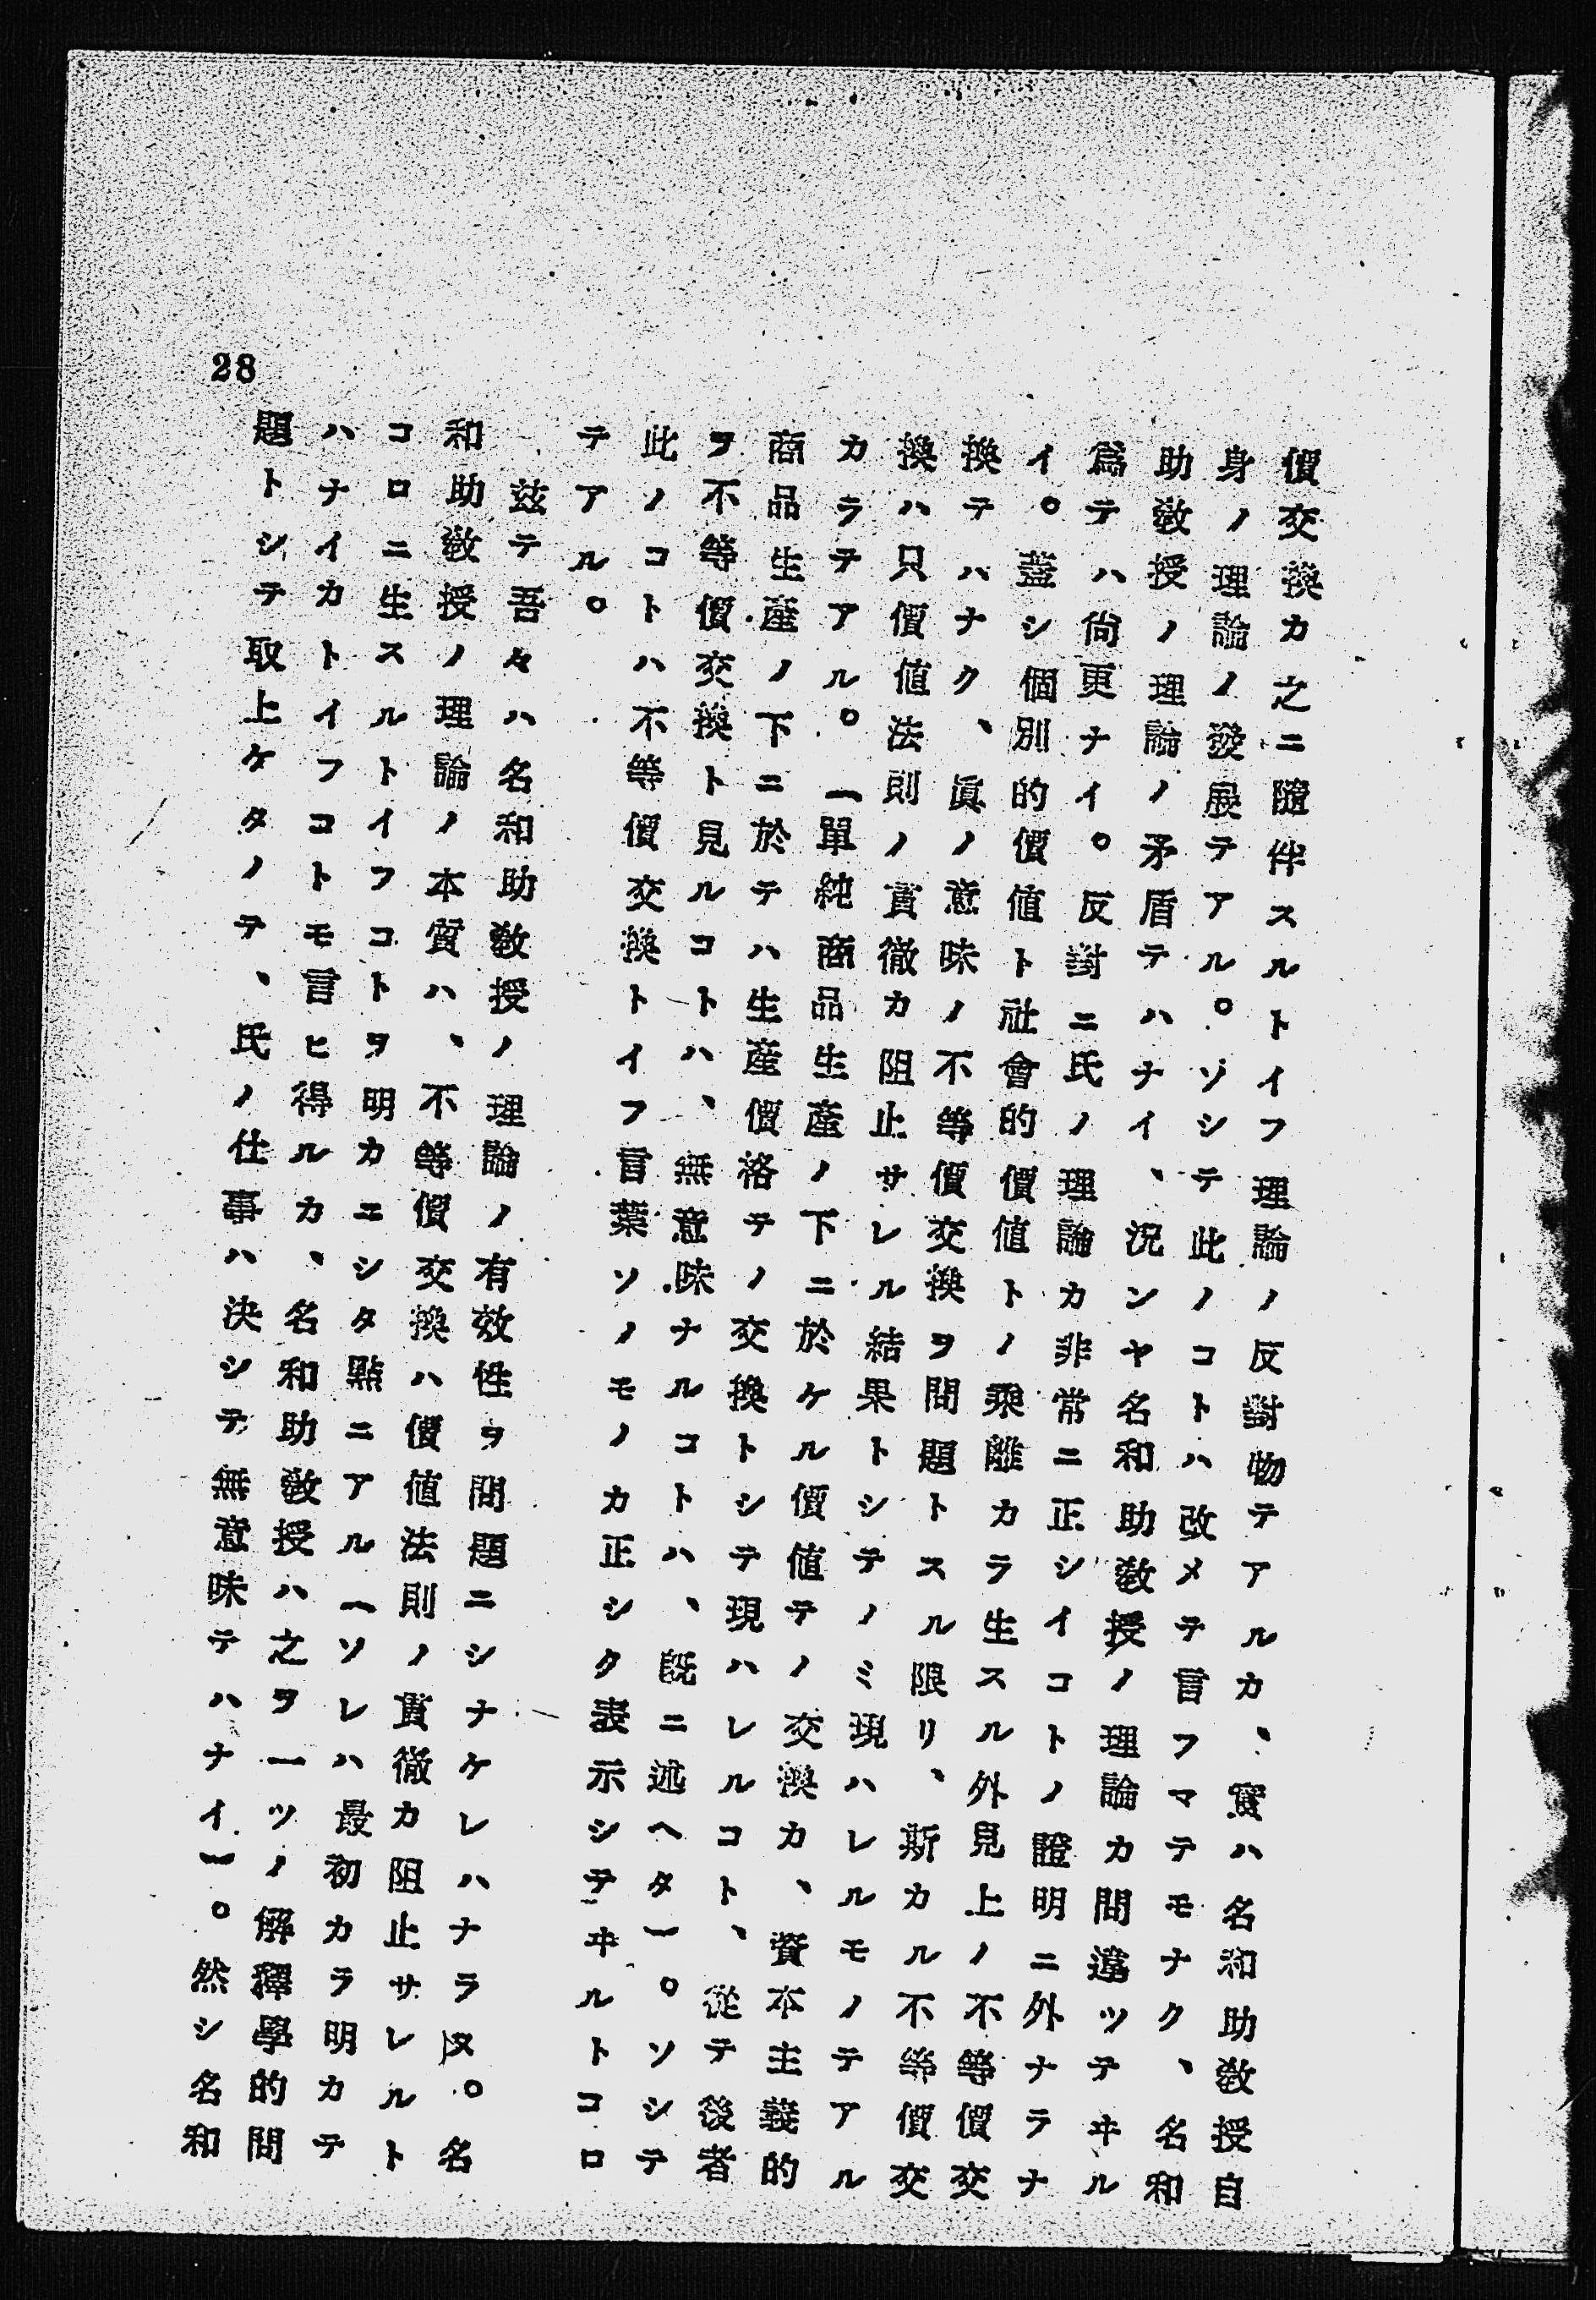 價交換カ之ニ隨伴スルトイフ理論ノ反對物テアルカ、實ハ名和助教授自
身ノ理論ノ發展テアル。ソシテ此ノコトハ改メテ言フマテモナク、名和
助教授ノ理論ノ矛盾テハナイ、況ンヤ名和助教授ノ理論カ間違ツテヰル
爲テハ尙更ナイ。反對ニ氏ノ理論カ非常ニ正シイコトノ證明ニ外ナラナ
イ。蓋シ個別的價値ト社會的價値トノ乘離カラ生スル外見上ノ不等價交
換テハナク、眞ノ意味ノ不等價交換ヲ問題トスル限リ、斯カル不等價交
換ハ只價値法則ノ貫徹カ阻止サレル結果トシテノミ現ハレルモノテアル
カラテアル。︵單純商品生產ノ下ニ於ケル價値テノ交換カ、資本主義的
商品生產ノ下ニ於テハ生產價洛テノ交換トシテ現ハレルコト、從テ後者
ヲ不等價交換ト見ルコトハ、無意味ナルコトハ、既ニ述ヘタ︶。ソシテ
此ノコトハ不等價交換トイフ言葉ソノモノカ正シク表示シテヰルトコロ
テアル。
茲テ吾々ハ名和助教授ノ理論ノ有效性ヲ問題ニシナケレハナラヌ。名
和助教授ノ理論ノ本質ハ、不等價交換ハ價値法則ノ貫徹カ阻止サレルト
コロニ生スルトイフコトヲ明カニシタ點ニアル︵ソレハ最初カラ明カテ
ハナイカトイフコトモ言ヒ得ルカ、名和助教授ハ之ヲ一ツノ解釋學的問
題トシテ取上ケタノテ、氏ノ仕事ハ決シテ無意味テハナイ︶。然シ名和
28